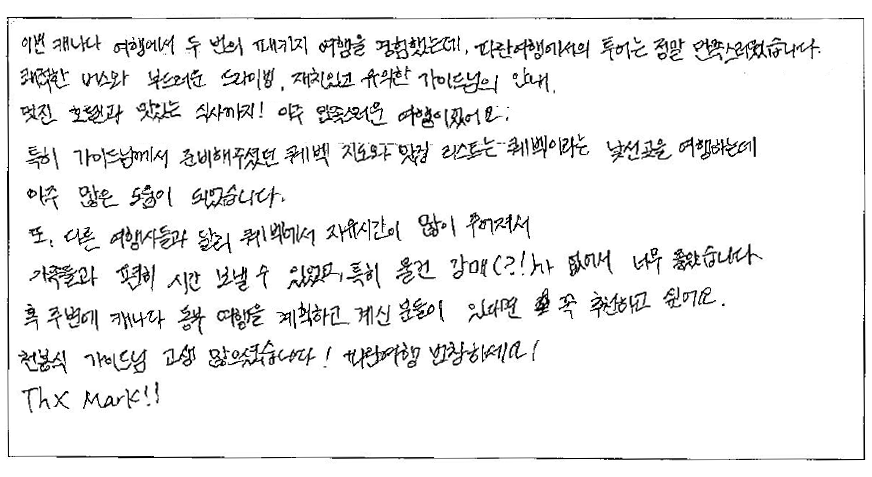 이번 캐나다 여행에서 두 번의 패키지 여행을 경험했는데, 파란여행에서의 투어는 정말 만족스러웠습니다.
쾌적한 버스와 부드러운 드라이빙, 재치있고 유익한 가이드님의 안내,
멋진 호텔과 맛있는 식사까지! 아주 만족스러운 여행이었어요.
특히 가이드님께서 준비해주셨던 퀘벡 지도와 맛집 리스트는 퀘벡이라는 낯선곳을 여행하는데
아주 많은 도움이 되었습니다.
또, 다른 여행사들과 달리 퀘벡에서 자유시간이 많이 주어져서
가족들과 편히 시간 보낼 수 있었고, 특히 물건 강매(?!)가 없어서 너무 좋았습니다
혹 주변에 캐나다 동부 여행을 계획하고 계신 분들이 있다면 꼭 추천하고 싶어요.
천봉식 가이드님 고생 많으셨습니다! 파란여행 번창하세요!
Thx Mark!!